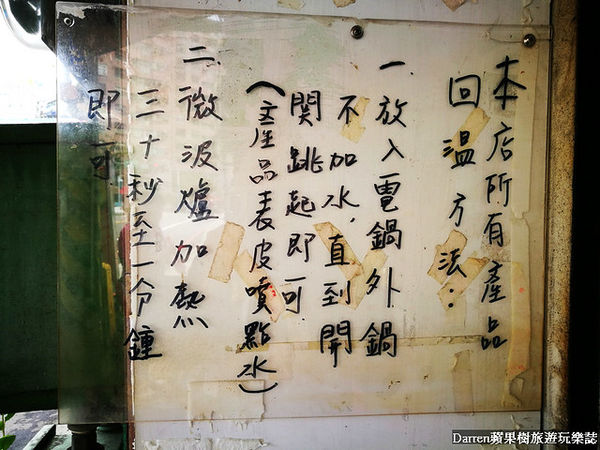 本店所有產品
回溫方法：
一放入電鍋外鍋
不加水，直到開
関跳起即可
（產品表皮噴點水）
二微波爐加熱
三十秒至一分鐘
即可
Darren蘋果樹旅遊玩樂誌